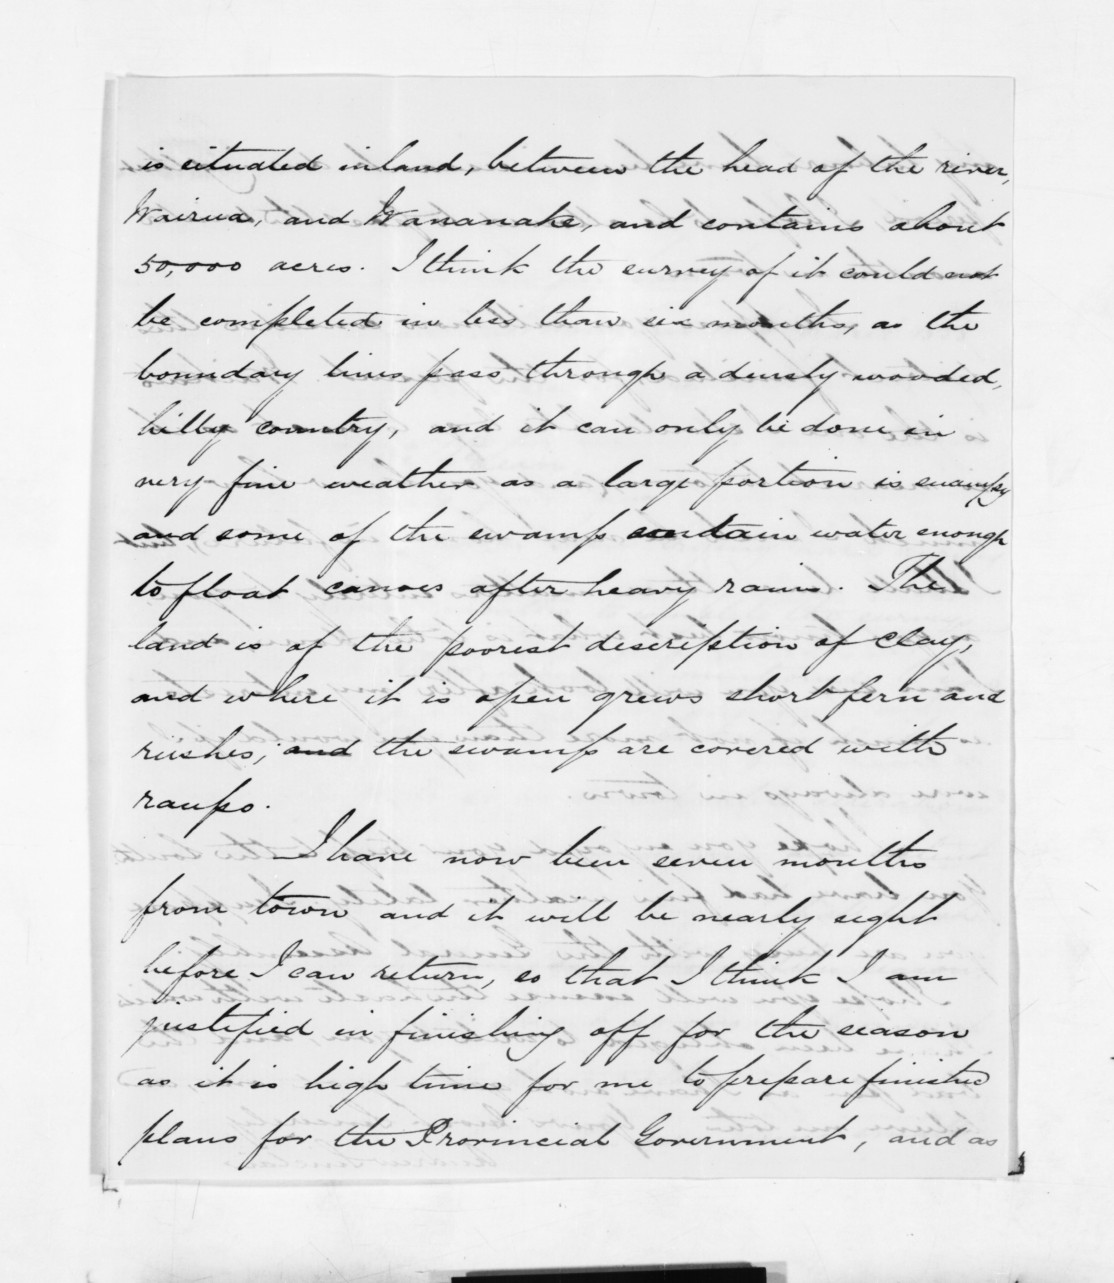 is situated inland, between the head of the river,
Wairua, and Wananake, and contains about
50,000 acres. I think the survey of it could not
be completed in less than six months, as the
boundary lines pass through a densly wooded,
hilly country, and it can only be done in
very fine weather as a large portion is swampy
and some of the swamps contain water enough
to float canoes after heavy rains. The
land is of the poorest description of clay,
and where it is open grows short fern and
rushes; and the swamps are covered with
raupo.
I have now been seven months
from town and it will be nearly eight
before I can return, so that I think I am
justified in finishing off for the season
as it is high time for me to prepare finished
plans for the Provincial Government, and as